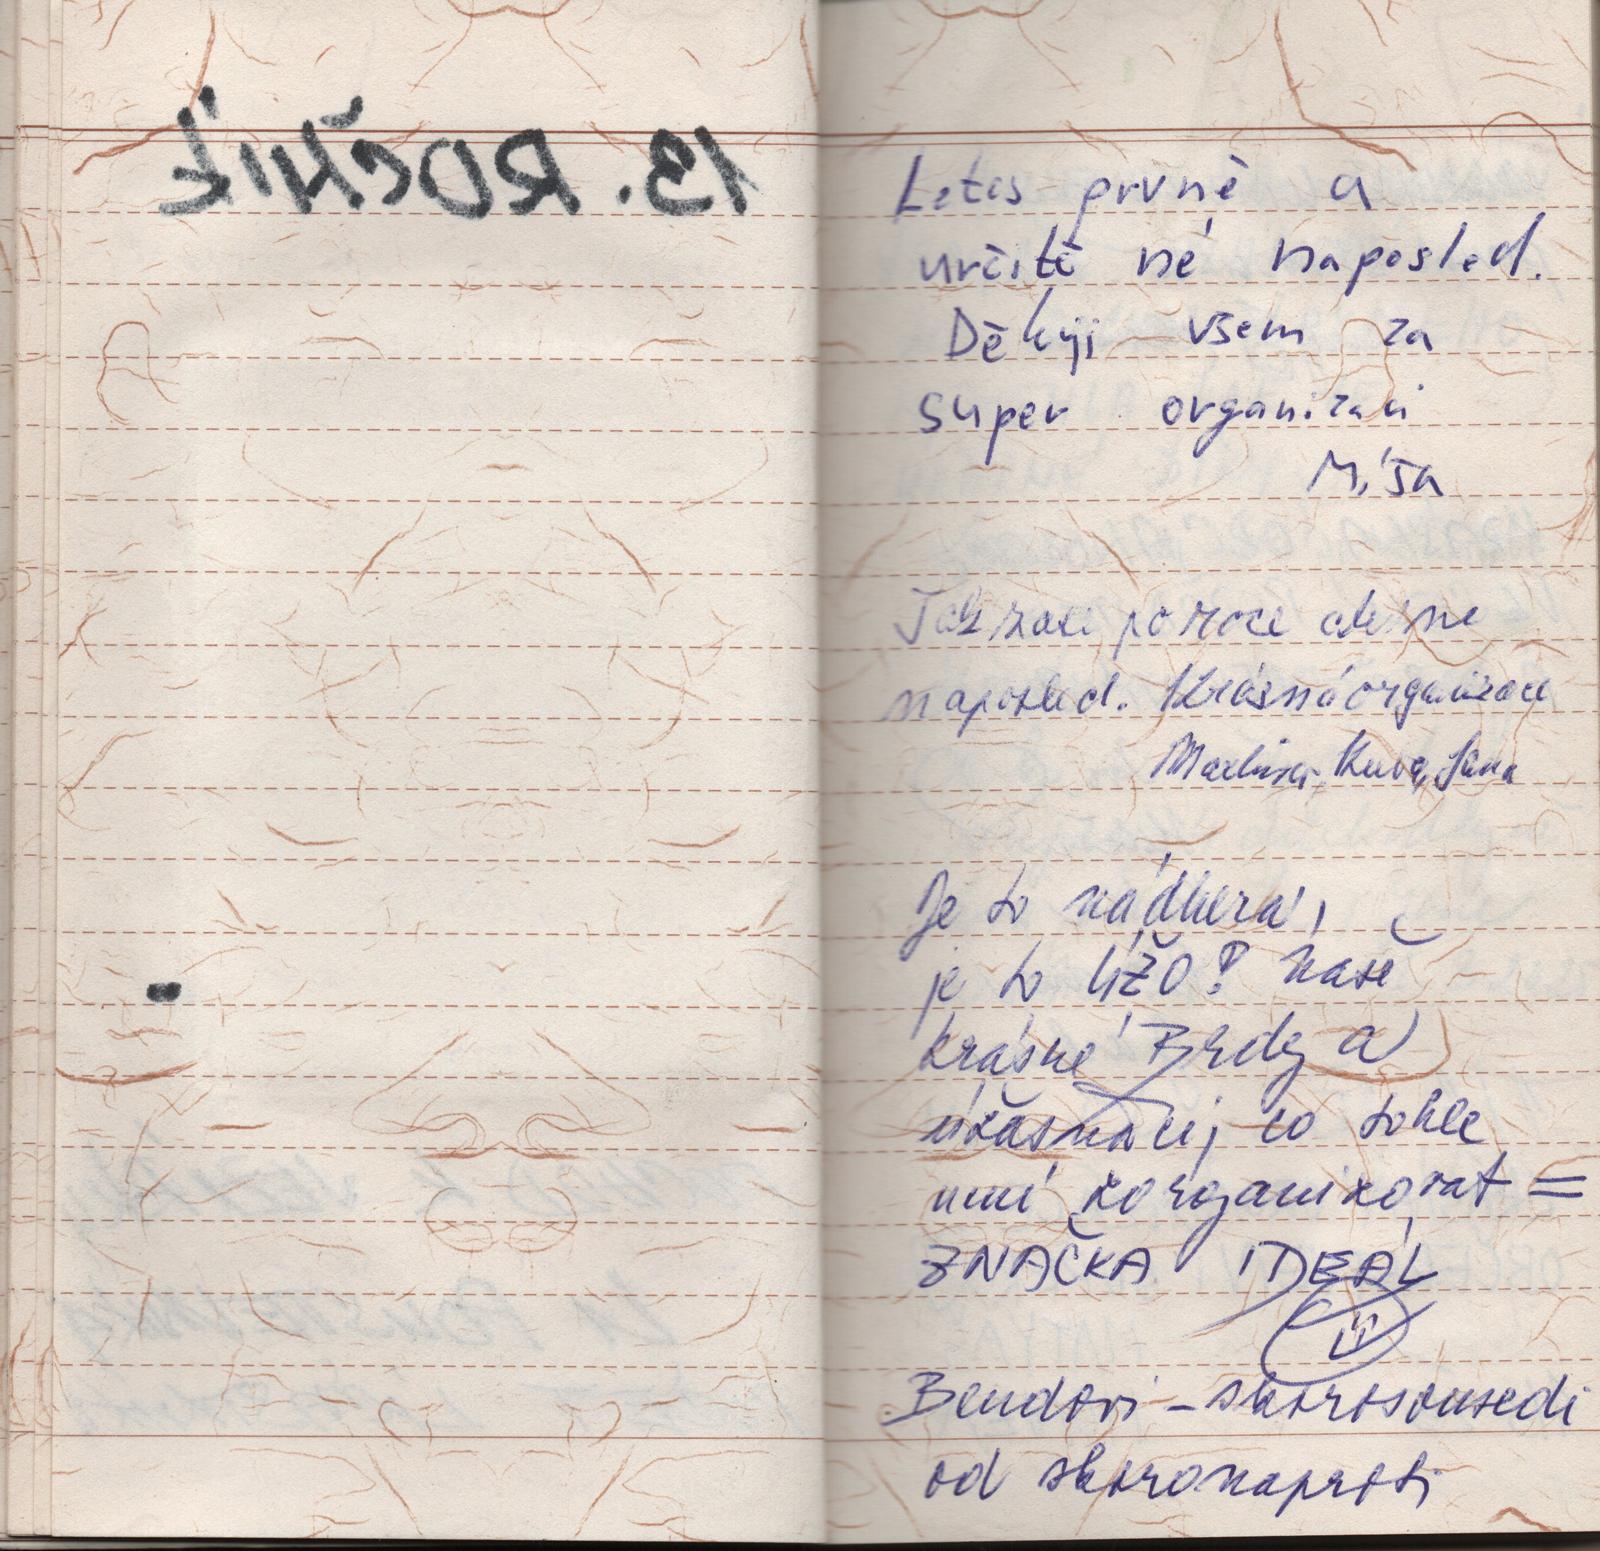 13. ROČNÍK
Letos prvně a
určitě né naposled.
Děkuji všem za
super organizaci
Míša
Tak zase po roce ale ne
naposled. Krásná organizace
Kuba, Jana
Je to nádhera,
je to UŽO? naše
krásné Brdy a
úžasňáci, co tohle
umí zorganizovat =
ZNAČKA IDEÁL
Bendovi - skorosousedi
od skoronaproti